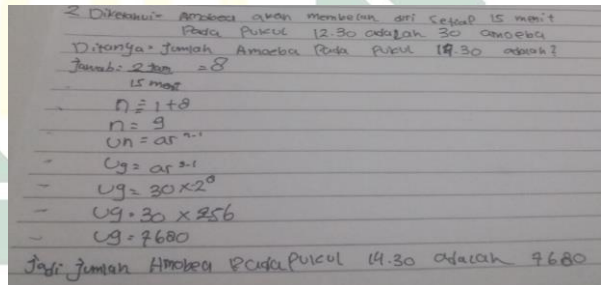 2 Diketahui= Amobea akan membelah diri setiap 15 menit
Pada Pukul 12.30 adalah 30 amoeba
Ditanya= Jumlah Amoeba Pada Pukul 14.30 adalah?
Jawab: 2 jam / 15 menit = 8
n = 1+8
n = 9
Un = ar ⁿ⁻¹
U9 = ar ⁹⁻¹
U9 = 30 × 2⁸
U9 = 30 × 256
U9 = 7680
Jadi Jumlah Amobea Pada Pukul 14.30 adalah 7680